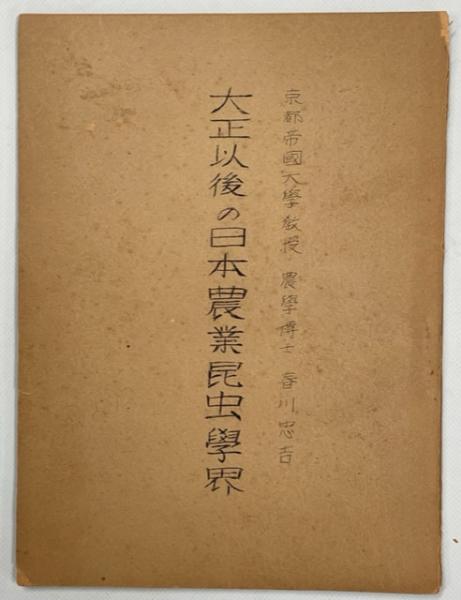 京都帝國大學教授 農學博士 春川忠吉
大正以後の日本農業昆虫學界